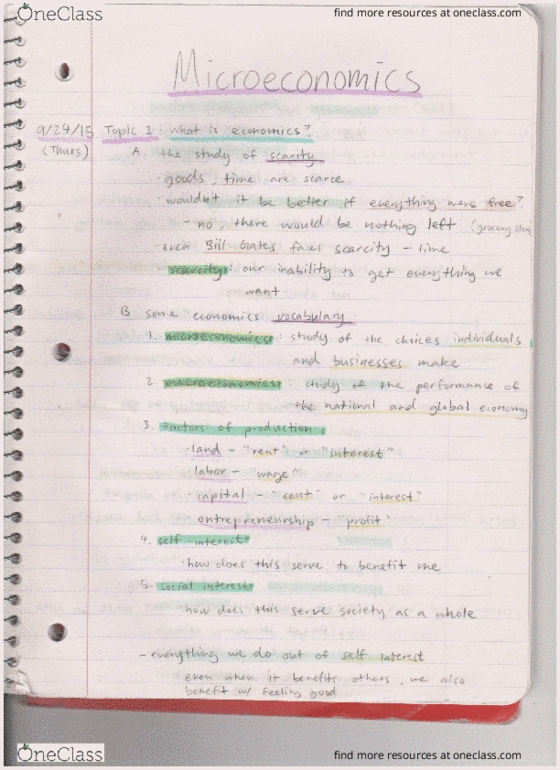 OneClass find more resources at oneclass.com
Microeconomics
9/24/15 Topic 1: what is economics?
(Thurs) A. the study of scarity
· goods, time are scarce
· wouldn't it be better if everything were free?
- no, there would be nothing left (grocery store)
· even Bill Gates faces scarcity - time
· scarcity: our inability to get everything we
want
B some economics vocabulary
1. microeconomics: study of the choices individuals
and businesses make
2. macroeconomics: study of the performance of
the national and global economy
3. factors of production:
· land - "rent" or "interest"
labor - "wage"
· capital - "rent" or "interest"
entrepreneurship - "profit"
4. self interest
· how does this serve to benefit me
5. social interest
how does this serve society as a whole
- everything we do out of self interest
even when it benefits others, we also
benefit w/ feeling good
OneClass find more resources at oneclass.com